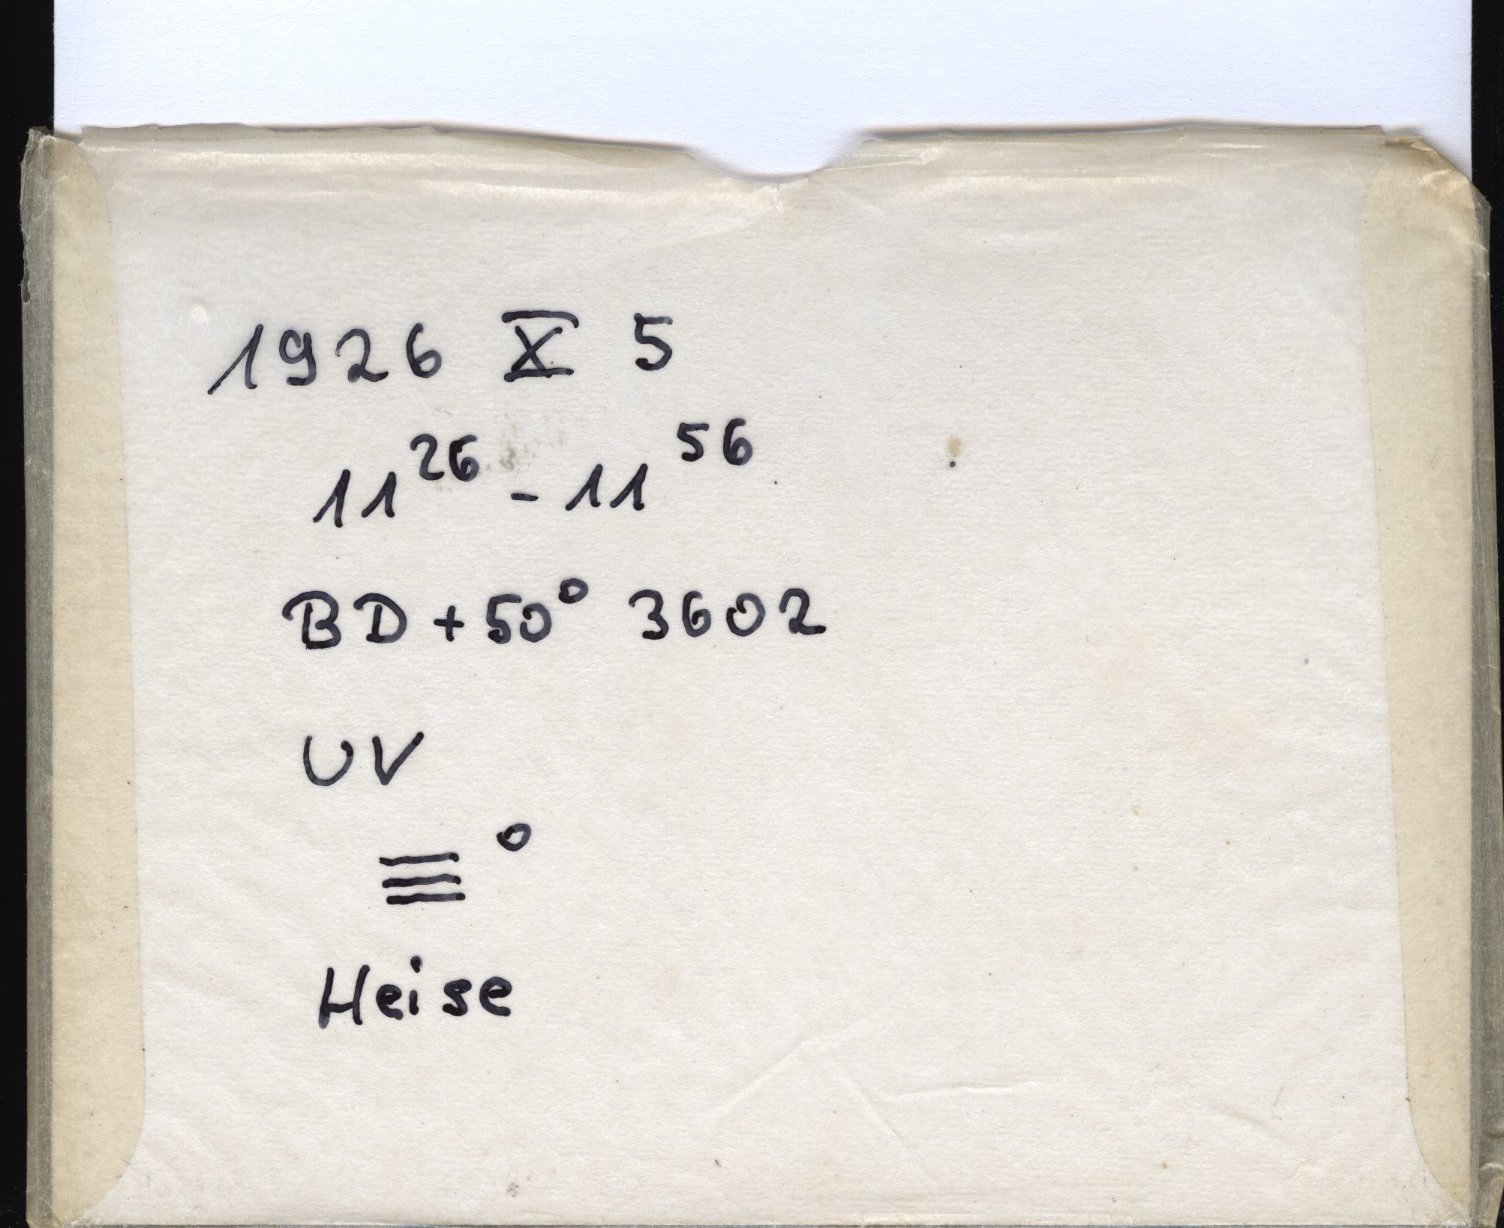 1926 X 5
11²⁶ - 11⁵⁶
BD + 50° 3602
UV
≡°
Heise